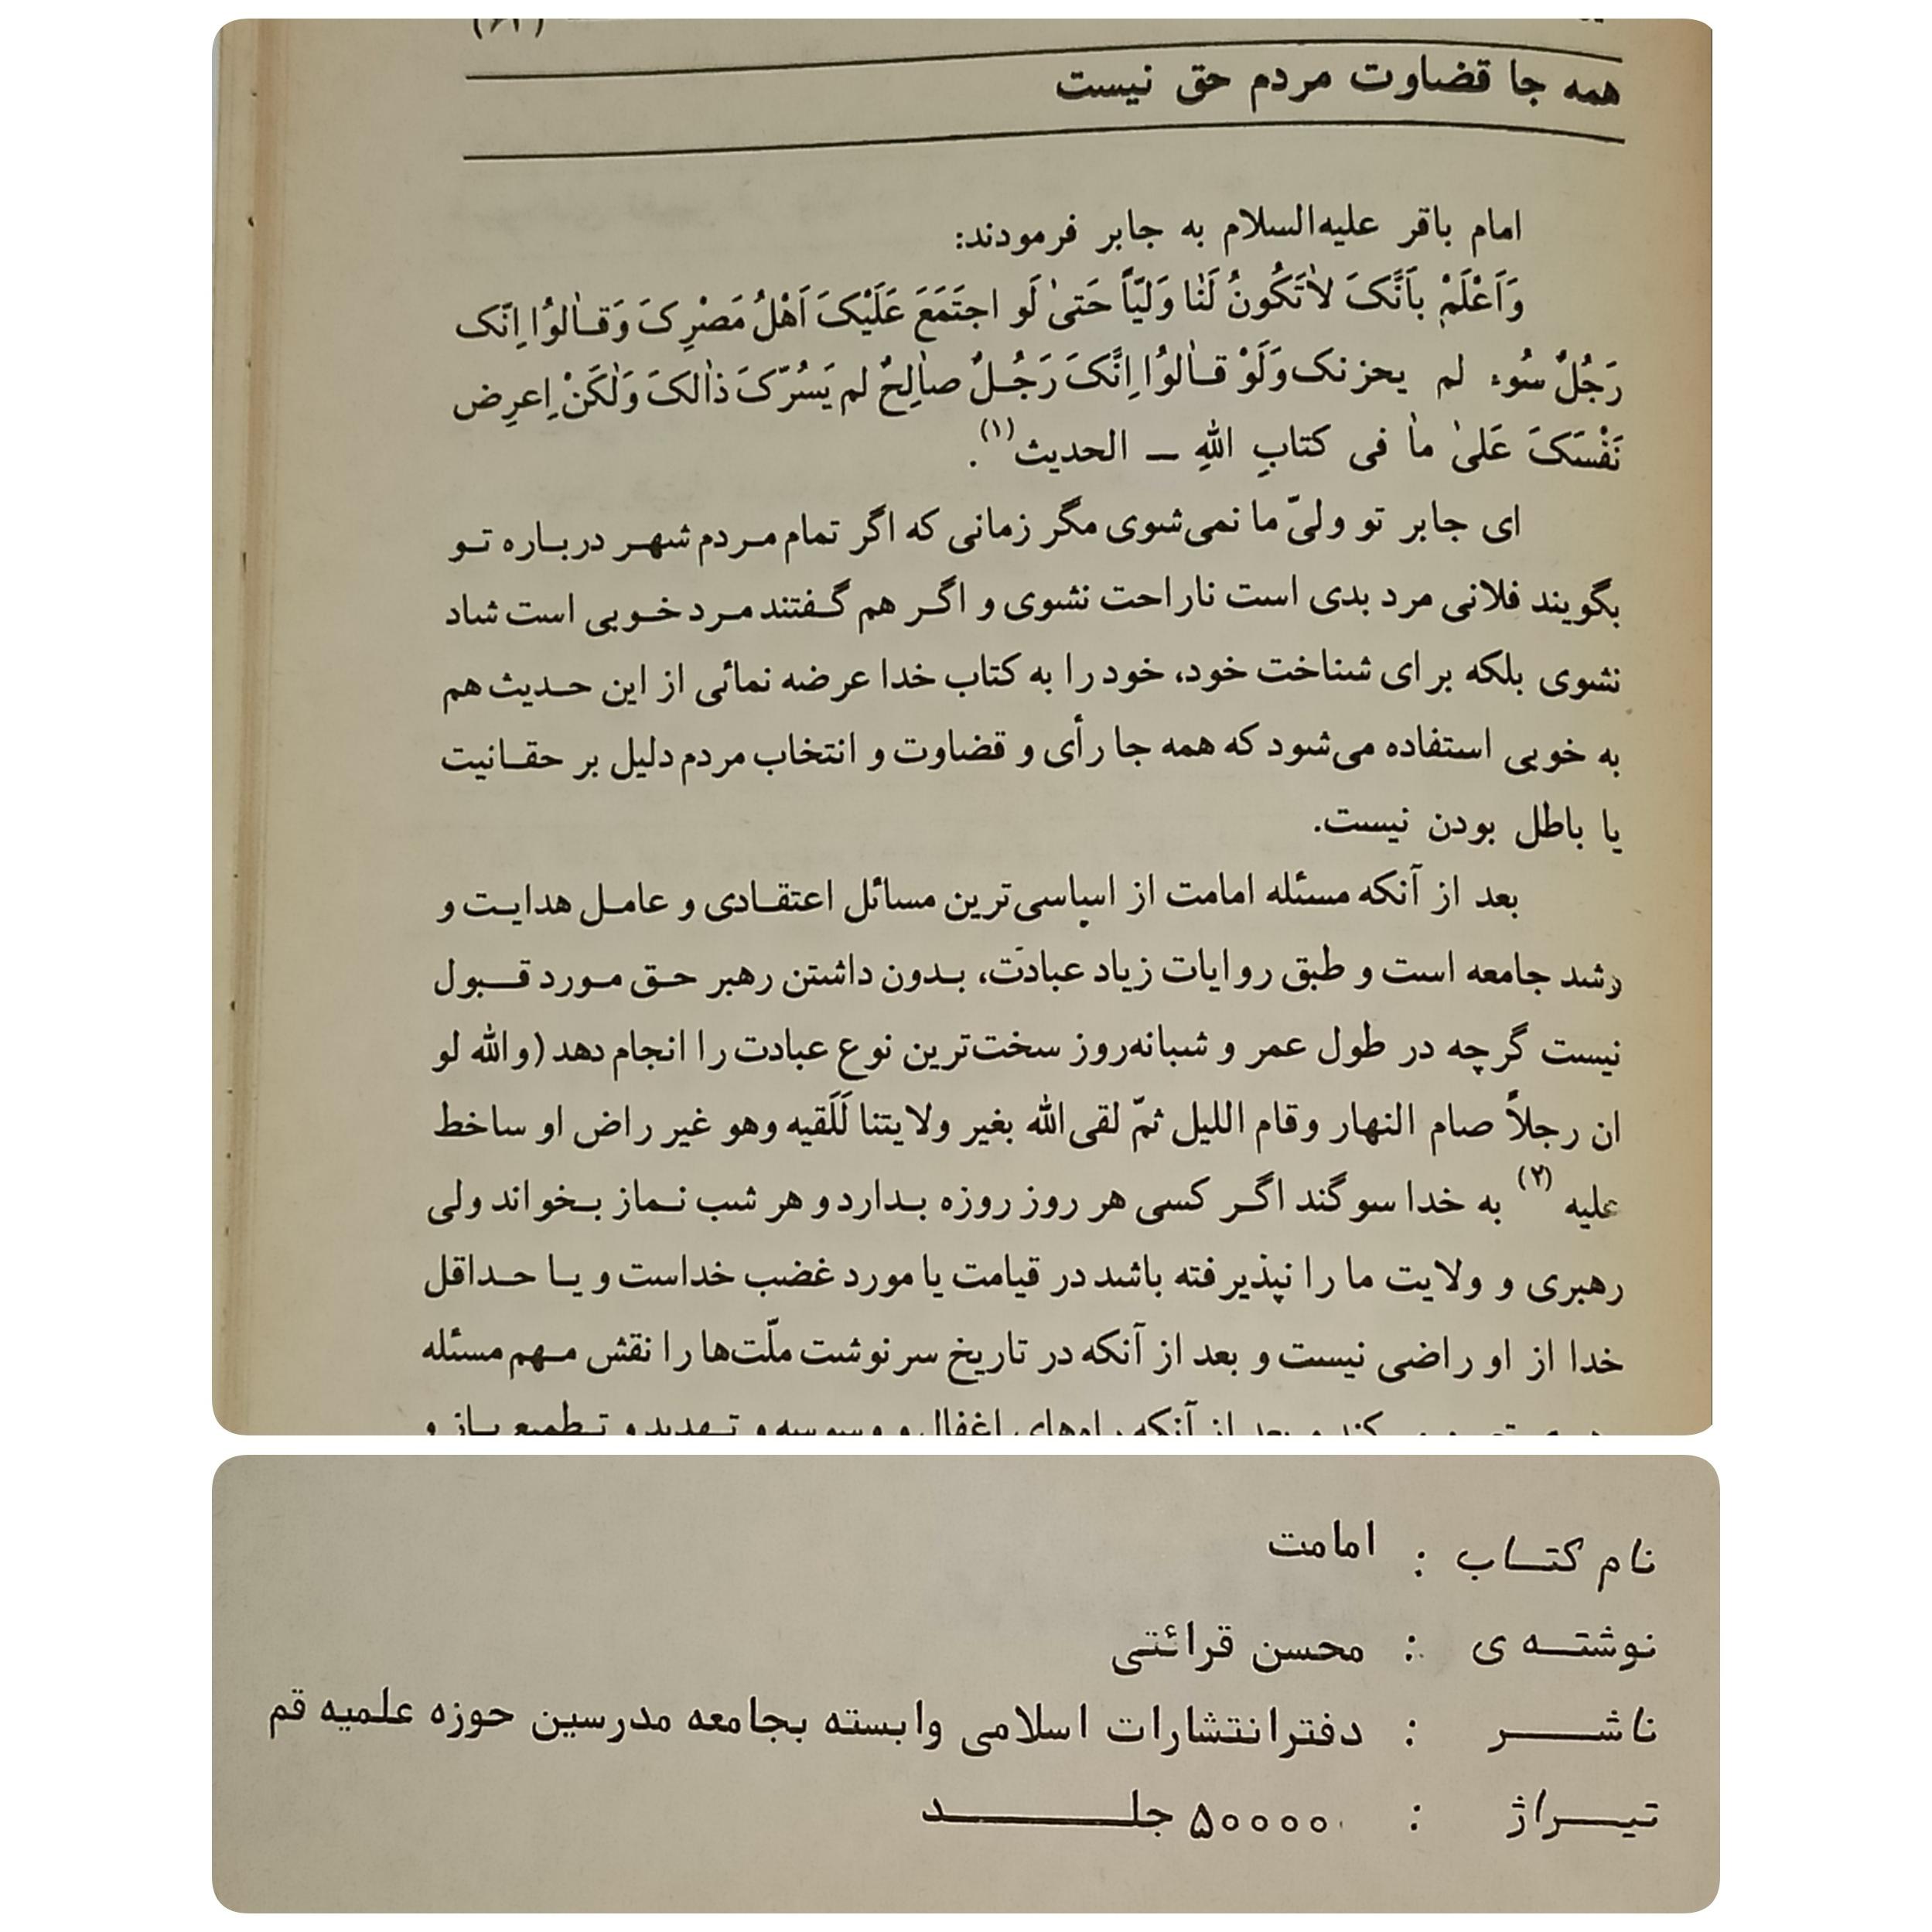 همه جا قضاوت مردم حق نیست
امام باقر علیه‌السلام به جابر فرمودند:
وَاَعْلَمْ بِاَنَّکَ لاٰتَکُونُ لَنٰا وَلیّاً حَتیٰ لَو اجتَمَعَ عَلَیْکَ اَهْلُ مَصْرِکَ وَقٰالوُا اِنَّک
رَجُلٌ سُوء لم یحزنک وَلَوْ قٰالوُا اِنَّکَ رَجُلٌ صاٰلِحٌ لم یَسُرّکَ ذاٰلکَ وَلٰکَنْ اِعرِض
نَفْسَکَ عَلیٰ ماٰ فی کتابِ اللّهِ ـ الحدیث(۱).
ای جابر تو ولیّ ما نمی‌شوی مگر زمانی که اگر تمام مردم شهر درباره تو
بگویند فلانی مرد بدی است ناراحت نشوی و اگر هم گفتند مرد خوبی است شاد
نشوی بلکه برای شناخت خود، خود را به کتاب خدا عرضه نمائی از این حدیث هم
به خوبی استفاده می‌شود که همه جا رأی و قضاوت و انتخاب مردم دلیل بر حقانیت
یا باطل بودن نیست.
بعد از آنکه مسئله امامت از اساسی‌ترین مسائل اعتقادی و عامل هدایت و
رشد جامعه است و طبق روایات زیاد عبادت، بدون داشتن رهبر حق مورد قبول
نیست گرچه در طول عمر و شبانه‌روز سخت‌ترین نوع عبادت را انجام دهد (والله لو
ان رجلاً صام النهار وقام اللیل ثمّ لقی‌الله بغیر ولایتنا لَلَقیه وهو غیر راض او ساخط
علیه (۲) به خدا سوگند اگر کسی هر روز روزه بدارد و هر شب نماز بخواند ولی
رهبری و ولایت ما را نپذیرفته باشد در قیامت یا مورد غضب خداست و یا حداقل
خدا از او راضی نیست و بعد از آنکه در تاریخ سرنوشت ملّت‌ها را نقش مهم مسئله
کند و بعد از آنکه راه‌های اغفال و وسوسه و تهدید و تطمیع باز و
نام کتاب : امامت
نوشته ی : محسن قرائتی
ناشر : دفتر انتشارات اسلامی وابسته بجامعه مدرسین حوزه علمیه قم
تیراژ : ۵۰۰۰۰ جلد